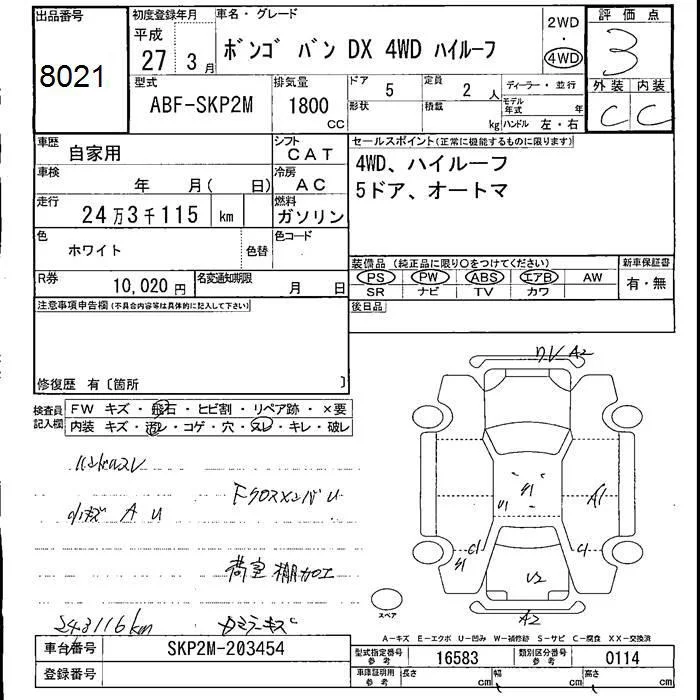 出品番号
8021
初度登録年月
平成
27 年 3 月
車名・グレード
ボンゴ バン DX 4WD ハイルーフ
2WD
・
4WD
評価点
3
外装 内装
C C
型式
ABF-SKP2M
排気量
1800
CC
ドア 5
形状
定員 2 人
積載 kg
ディーラー・並行
モデル年式 年
ハンドル 左・右
車歴
自家用
シフト
CAT
車検
年 月( 日)
冷房
AC
走行
24万3千115 km
燃料
ガソリン
色
ホワイト
色替
色コード
R券
10,020 円
名変通知期限
月 日
セールスポイント(正常に機能するものに限ります)
4WD、ハイルーフ
5ドア、オートマ
装備品 (純正品に限り○をつけてください)
PS PW ABS エアB AW
SR ナビ TV カワ
新車保証書
有・無
後日品
注意事項申告欄(不具合内容等は具体的に記入して下さい)
修復歴 有〔箇所 〕
検査員
記入欄
FW キズ・飛石・ヒビ割・リペア跡・×要
内装 キズ・汚レ・コゲ・穴・スレ・キレ・破レ
ハンドルスレ
FクロスメンバU
小キズ A U
荷室 棚加工
243116km
カメラキズ
A2
S1
U1
A1
C1
S1
C1
U2
A2
スペア
A-キズ E-エクボ U-凹み W-補修跡 S-サビ C-腐食 XX-交換済
車台番号
SKP2M-203454
登録番号
型式指定番号
参考
16583
類別区分番号
参考
0114
車庫証明用
参考
長さ cm 幅 cm 高さ cm